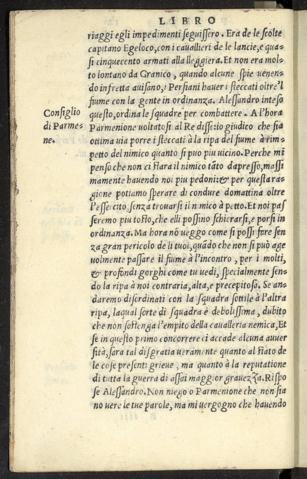 LIBRO
riaggi egli impedimenti seguissero. Era de le scolte
capitano Egeloco, con i cauallieri de le lancie, e qua-
si cinquecento armati alla lleggiera. Et non era mol-
to lontano da Granico, quando alcune spie uenen-
do infretta auisano, i Persiani hauer i steccati oltre'l
fiume con la gente in ordinanza. Alessandro inteso
questo, ordina le squadre per combattere. A l'hora
Consiglio
di Parme-
ne.
Parmenione uoltatosi al Re disse io giudico che sia
ottima uia porre i steccati à la ripa del fiume à rim-
petto del nimico quanto si puo piu uicino. Perche mi
penso che non ci starà il nimico tãto dapresso, massi
mamente hauendo noi piu pedoni et per questa ra-
gione potiamo sperare di condure domattina oltre
l'essercito, senza trouarsi il nimico à petto. Et noi pas
seremo piu tosto, che elli possino schierarsi, e porsi in
ordinanza. Ma hora nõ ueggo come si possi fare sen
za gran pericolo de li tuoi, quãdo che non si può age
uolmente passare il fiume à l'incontro, per i molti,
et profondi gorghi come tu uedi, specialmente sen-
do la ripa à noi contraria, alta, e precepitosa. Se an-
daremo disordinati con la squadra sottile à l'altra
ripa, laqual sorte di squadra è debolissima, dubito
che non sostenga l'empito della caualleria nemica, Et
se in questo primo concorrere ci accade alcuna auuer
sità, sara tal disgratia ueramente quanto al stato de
le cose presenti grieue, ma quanto à la reputatione
di tutta la guerra di assai maggior grauezza. Rispo
se Alessandro. Non niego o Parmenione che non sia
no uere le tue parole, ma mi uergogno che hauendo